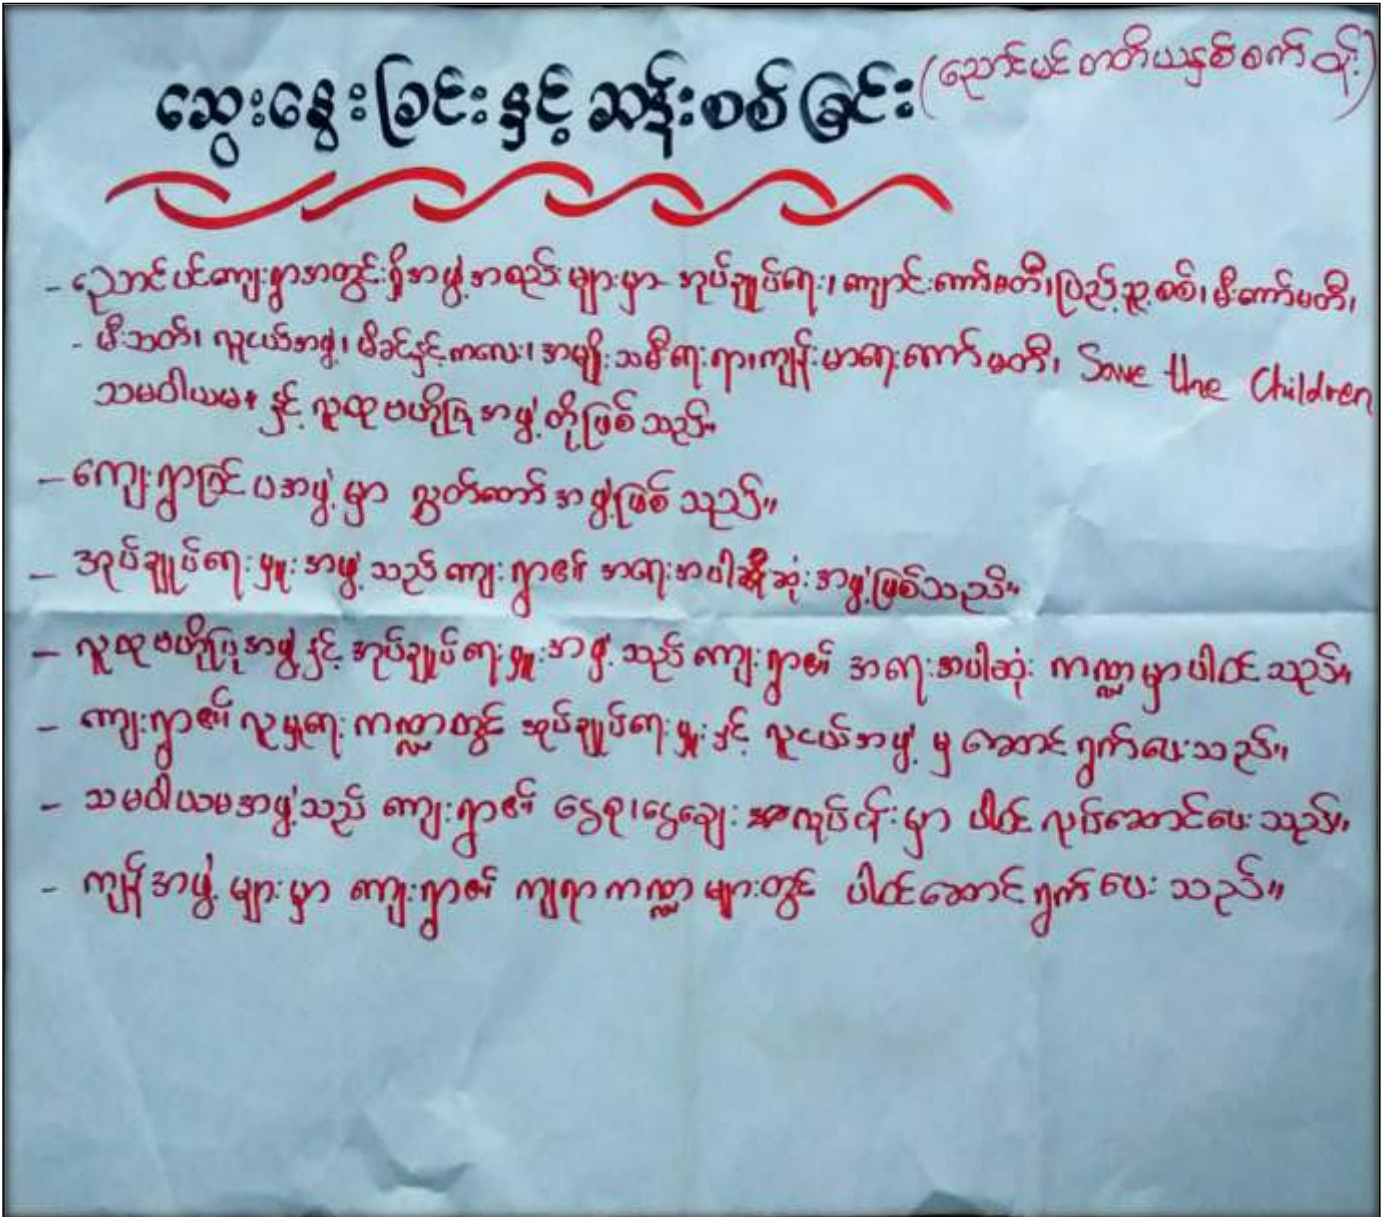 ဆွေးနွေးခြင်းနှင့် ဆန်းစစ်ခြင်း (ညောင်ပင် တတိယနှစ်စက်ဝန်း)
- ညောင်ပင်ကျေးရွာအတွင်းရှိအဖွဲ့အစည်းများမှာ အုပ်ချုပ်ရေး၊ ကျောင်းကော်မတီ၊ ပြည်သူ့စစ်၊ မီးကော်မတီ၊
- မီးသတ်၊ လူငယ်အဖွဲ့၊ မိခင်နှင့်ကလေး၊ အမျိုးသမီးရေးရာ၊ ကျန်းမာရေးကော်မတီ၊ Save the Children
သမဝါယမ နှင့် လူထုဗဟိုပြုအဖွဲ့တို့ဖြစ်သည်။
- ကျေးရွာပြင်ပအဖွဲ့မှာ လွှတ်တော်အဖွဲ့ဖြစ်သည်။
- အုပ်ချုပ်ရေးမှူးအဖွဲ့သည် ကျေးရွာ၏ အရေးအပါဆုံးအဖွဲ့ဖြစ်သည်။
- လူထုဗဟိုပြုအဖွဲ့နှင့် အုပ်ချုပ်ရေးမှူးအဖွဲ့သည် ကျေးရွာ၏ အရေးအပါဆုံး ကဏ္ဍမှာပါဝင်သည်။
- ကျေးရွာ၏ လူမှုရေးကဏ္ဍတွင် အုပ်ချုပ်ရေးမှူးနှင့် လူငယ်အဖွဲ့မှ ဆောင်ရွက်ပေးသည်။
- သမဝါယမအဖွဲ့သည် ကျေးရွာ၏ ငွေစု၊ ငွေချေး လုပ်ငန်းမှာ ပါဝင်လုပ်ဆောင်ပေးသည်။
- ကျန်အဖွဲ့များမှာ ကျေးရွာ၏ ကျရာကဏ္ဍများတွင် ပါဝင်ဆောင်ရွက်ပေးသည်။